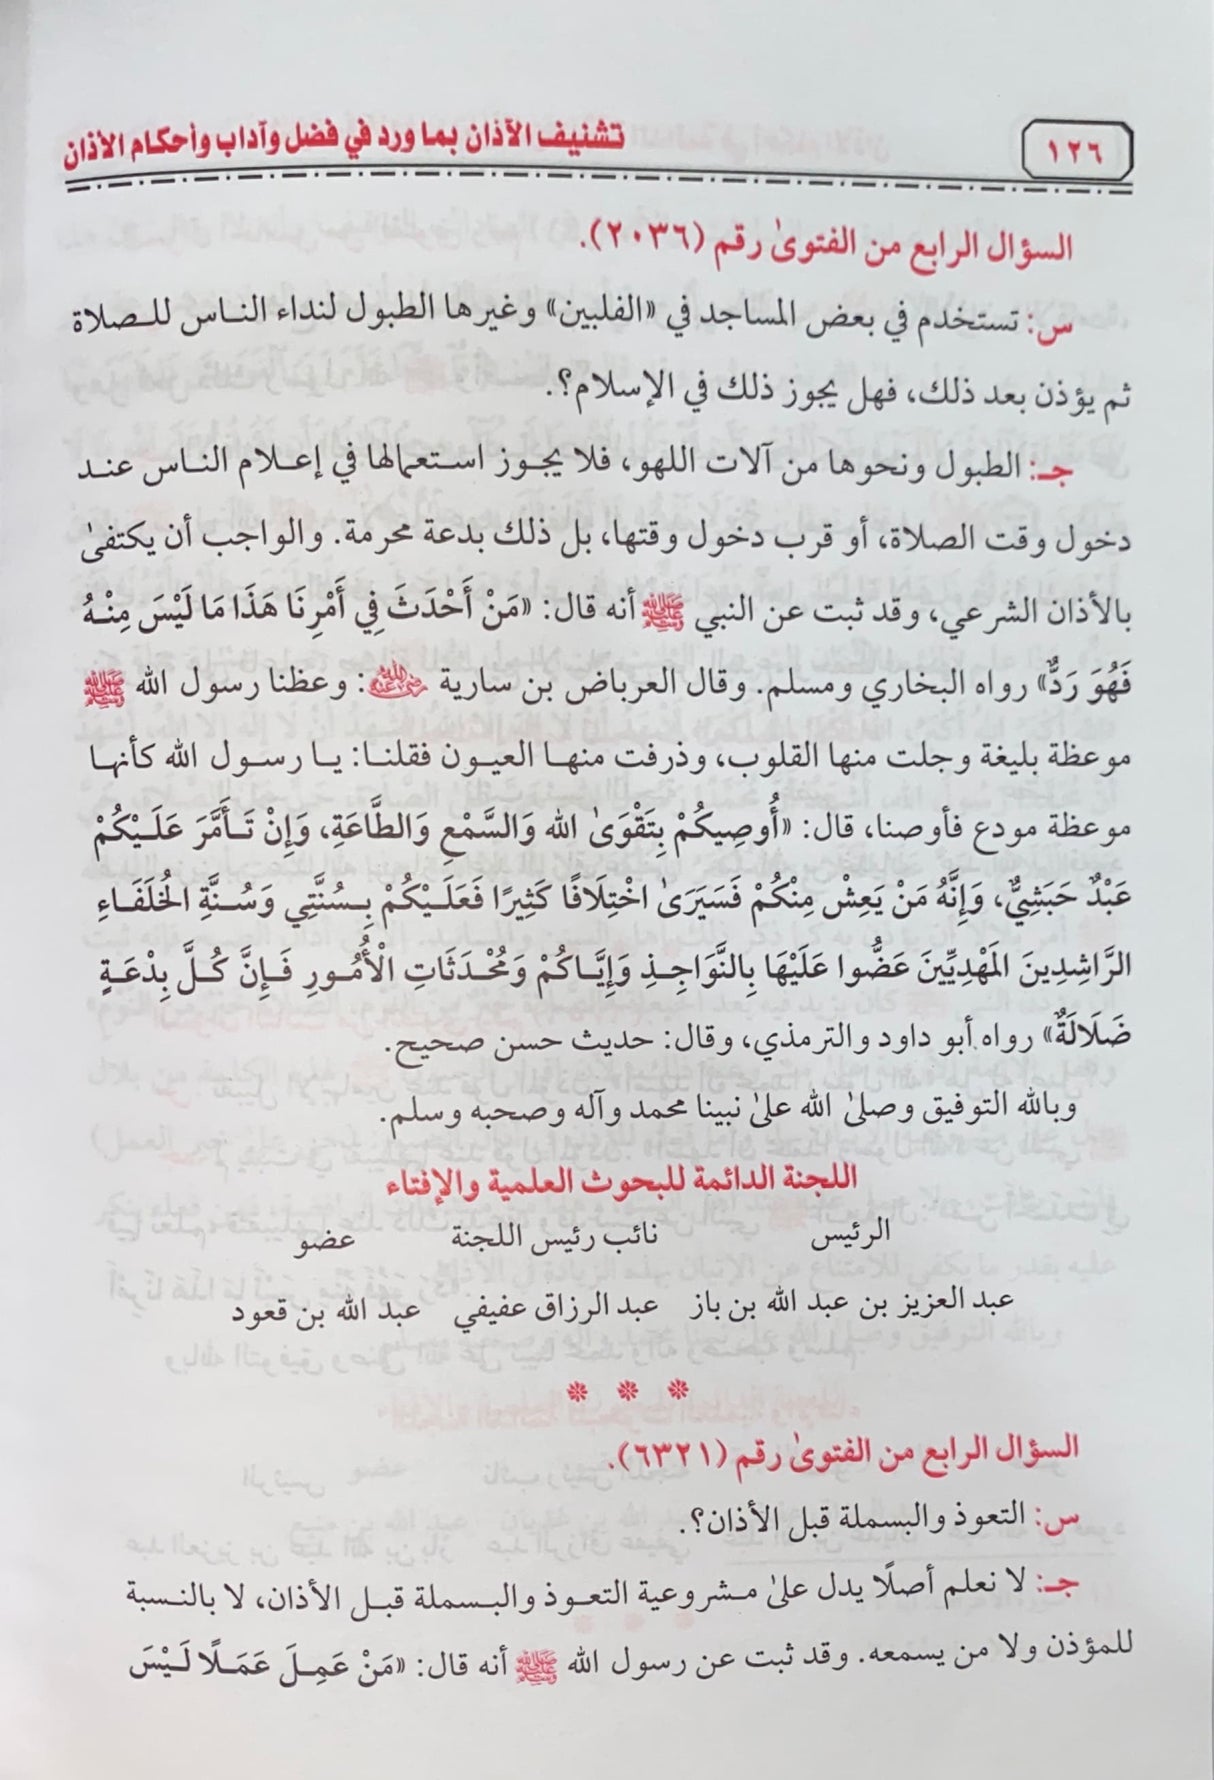 ١٢٦
تشنيف الآذان بما ورد في فضل وآداب وأحكام الأذان
السؤال الرابع من الفتوىٰ رقم (٢٠٣٦).
س: تستخدم في بعض المساجد في «الفلبين» وغيرها الطبول لنداء الناس للصلاة
ثم يؤذن بعد ذلك، فهل يجوز ذلك في الإسلام؟.
جـ: الطبول ونحوها من آلات اللهو، فلا يجوز استعمالها في إعلام الناس عند
دخول وقت الصلاة، أو قرب دخول وقتها، بل ذلك بدعة محرمة. والواجب أن يكتفىٰ
بالأذان الشرعي، وقد ثبت عن النبي ﷺ أنه قال: «مَنْ أَحْدَثَ فِي أَمْرِنَا هَذَا مَا لَيْسَ مِنْهُ
فَهُوَ رَدٌّ» رواه البخاري ومسلم. وقال العرباض بن سارية رضي الله عنه: وعظنا رسول الله ﷺ
موعظة بليغة وجلت منها القلوب، وذرفت منها العيون فقلنا: يا رسول الله كأنها
موعظة مودع فأوصنا، قال: «أُوصِيكُمْ بِتَقْوَىٰ الله وَالسَّمْعِ وَالطَّاعَةِ، وَإِنْ تَأَمَّرَ عَلَيْكُمْ
عَبْدٌ حَبَشِيٌّ، وَإِنَّهُ مَنْ يَعِشْ مِنْكُمْ فَسَيَرَىٰ اخْتِلَافًا كَثِيرًا فَعَلَيْكُمْ بِسُنَّتِي وَسُنَّةِ الخُلَفَاءِ
الرَّاشِدِينَ المَهْدِيِّينَ عَضُّوا عَلَيْهَا بِالنَّوَاجِذِ وَإِيَّاكُمْ وَمُحْدَثَاتِ الْأُمُورِ فَإِنَّ كُلَّ بِدْعَةٍ
ضَلَالَةٌ» رواه أبو داود والترمذي، وقال: حديث حسن صحيح.
وبالله التوفيق وصلىٰ الله علىٰ نبينا محمد وآله وصحبه وسلم.
اللجنة الدائمة للبحوث العلمية والإفتاء
الرئيس نائب رئيس اللجنة عضو
عبد العزيز بن عبد الله بن باز عبد الرزاق عفيفي عبد الله بن قعود
السؤال الرابع من الفتوىٰ رقم (٦٣٢١).
س: التعوذ والبسملة قبل الأذان؟.
جـ: لا نعلم أصلًا يدل علىٰ مشروعية التعوذ والبسملة قبل الأذان، لا بالنسبة
للمؤذن ولا من يسمعه. وقد ثبت عن رسول الله ﷺ أنه قال: «مَنْ عَمِلَ عَمَلًا لَيْسَ